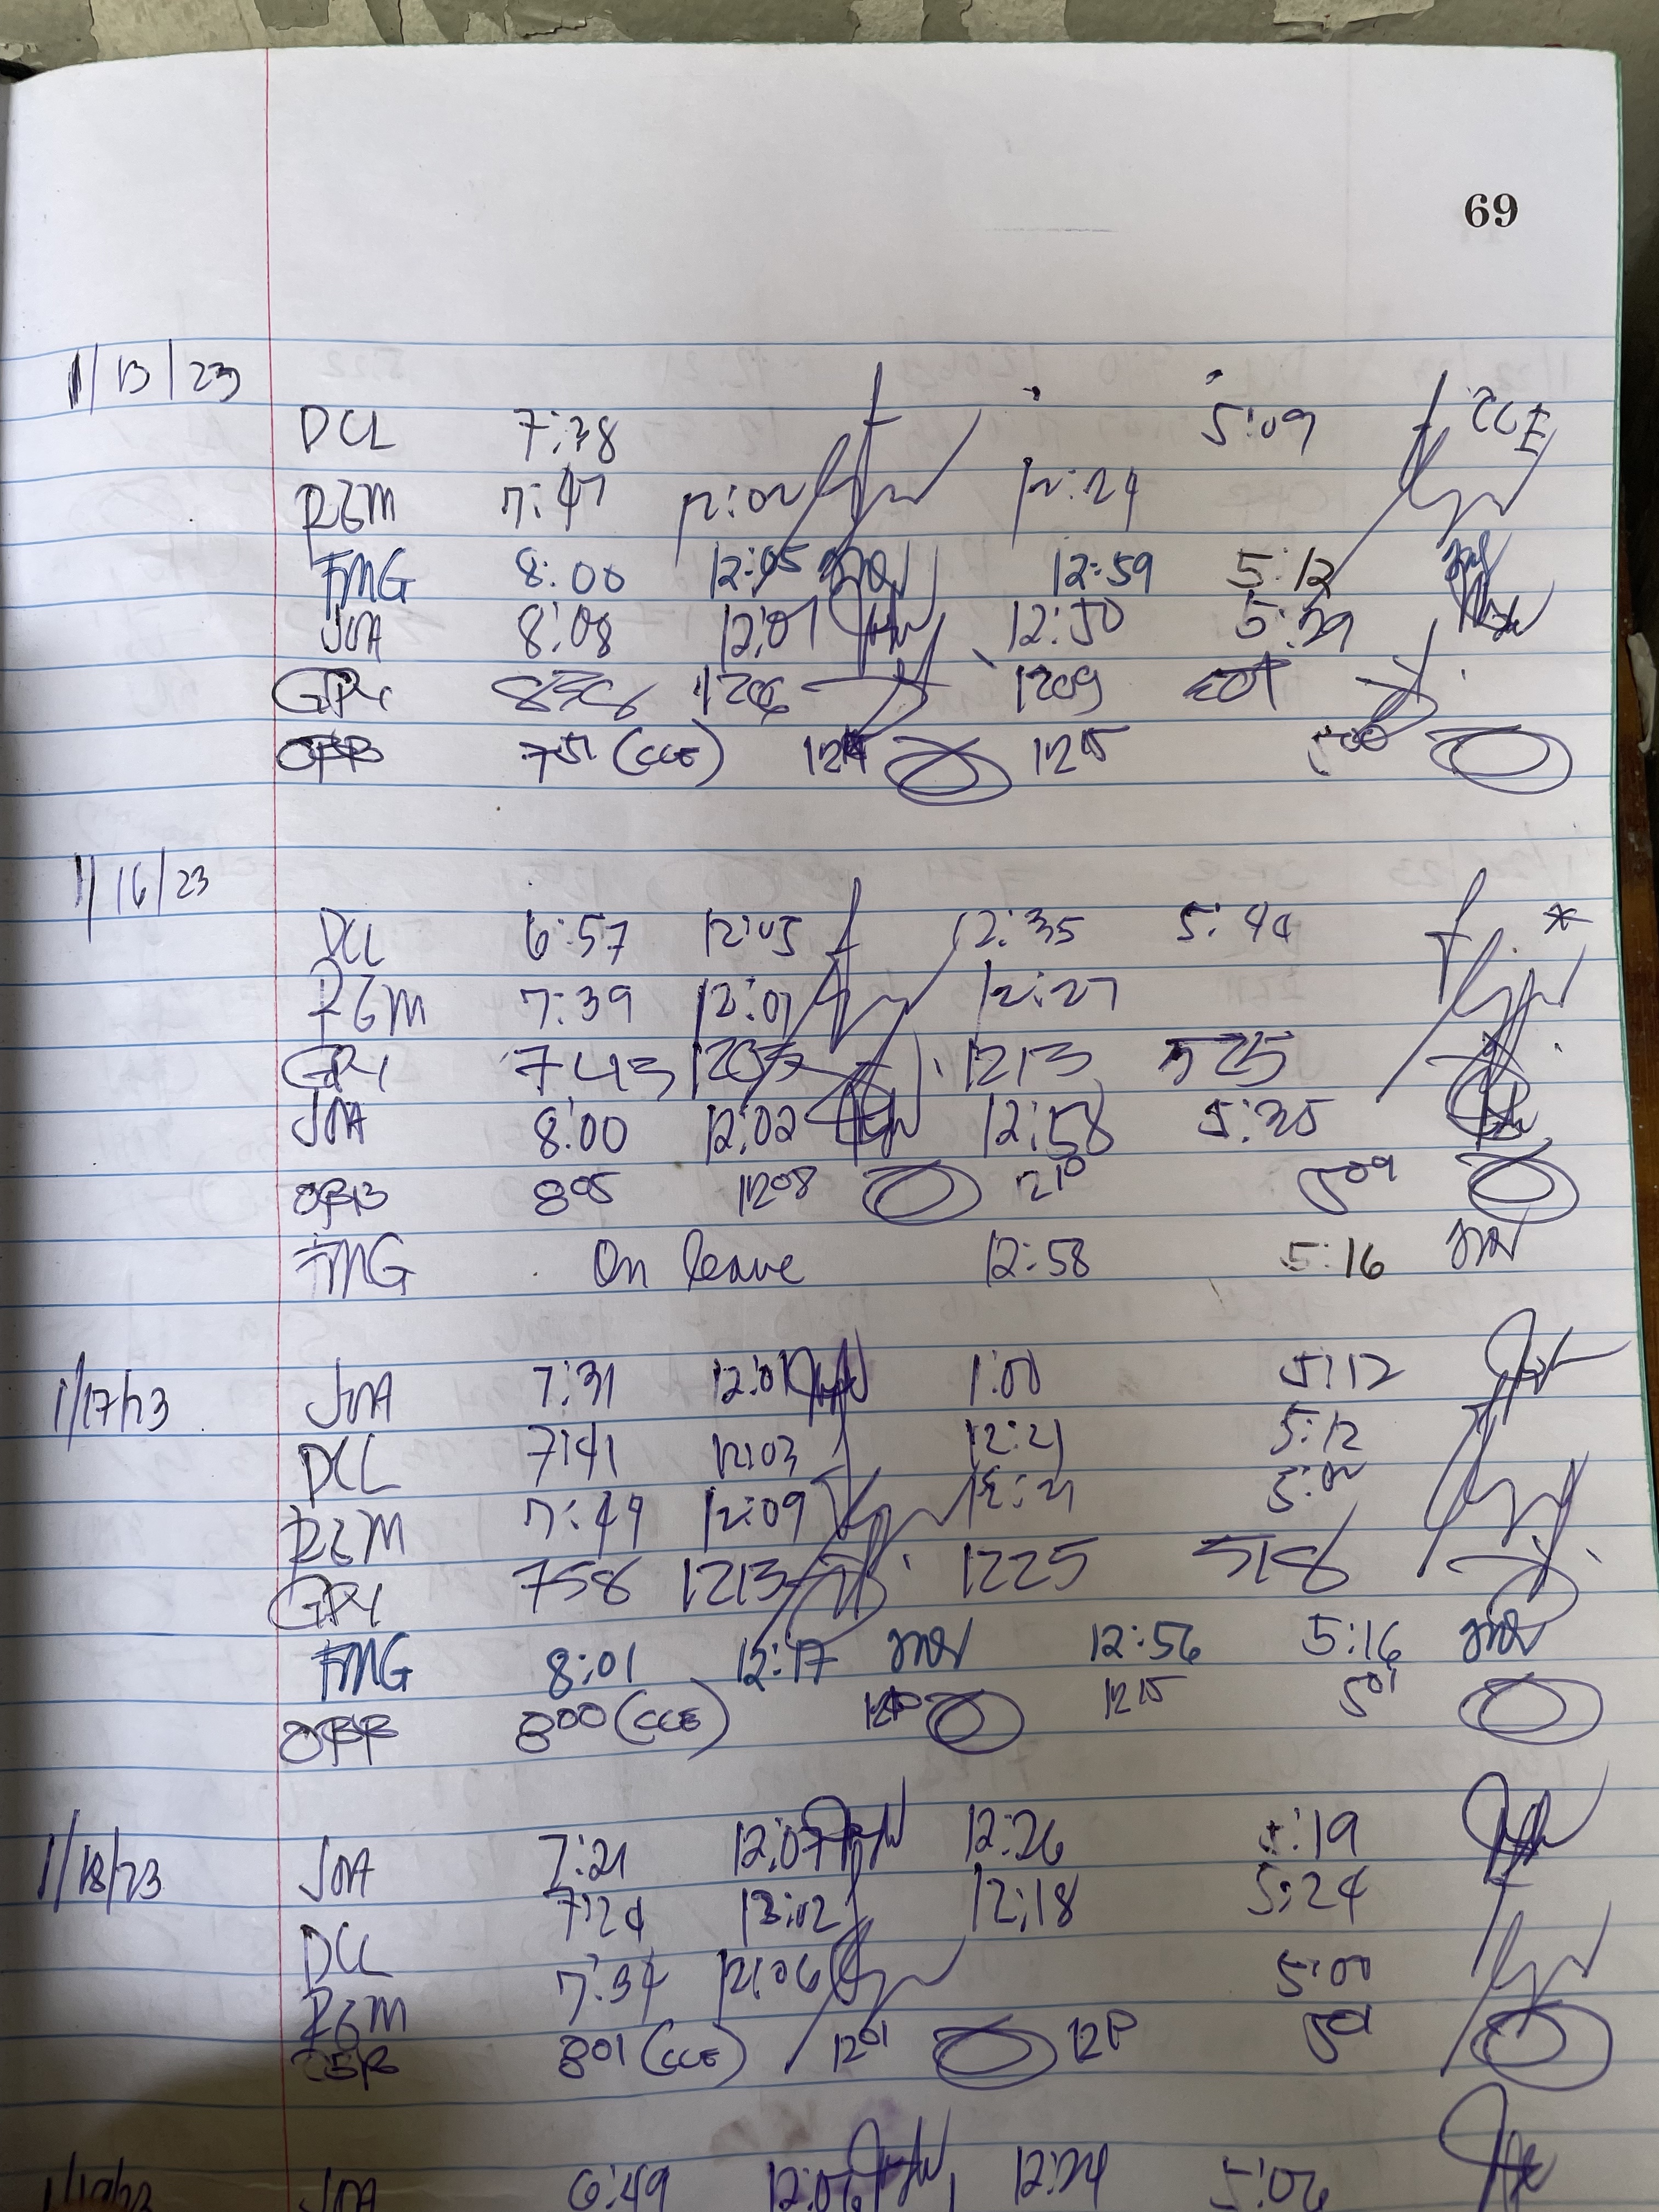 69
1/13/23
DCL 7:38 5:09 CCE
RGM 7:47 12:02 12:24
FMG 8:00 12:05 12:59 5:12
JOA 8:08 12:01 12:50 5:39
GPY 1206 1209
OBB 751 (CCE) 1215 500
1/16/23
DCL 6:57 12:05 12:35 5:44 *
RGM 7:39 12:07 12:27
GPY 743 1207 1213 525
JOA 8:00 12:02 12:58 5:35
OBB 805 1208 1210 509
FMG On leave 12:58 5:16
1/17/23 JOA 7:31 12:01 1:00 5:12
DCL 7:41 12:03 12:21 5:12
RGM 7:49 12:09 12:21 5:02
GPY 758 1213 1225 518
FMG 8:01 12:17 12:56 5:16
OBB 800 (CCE) 1215 501
1/18/23 JOA 7:21 12:07 12:26 5:19
DCL 7:24 12:02 12:18 5:24
RGM 7:34 12:06 5:00
OBB 801 (CCE) 1201 501
1/19/23 JOA 6:49 12:06 12:24 5:06